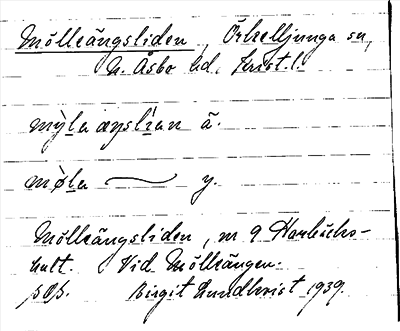 Mölleängsliden, Örkelljunga sn,
N. Åsbo hd, Krist. l.
mỳla æŋslian ä.
mø̀la ⁓ y.
Mölleängsliden, m 9 Harbäcks-
hult. Vid Mölleängen.
Birgit Lundkvist 1939.